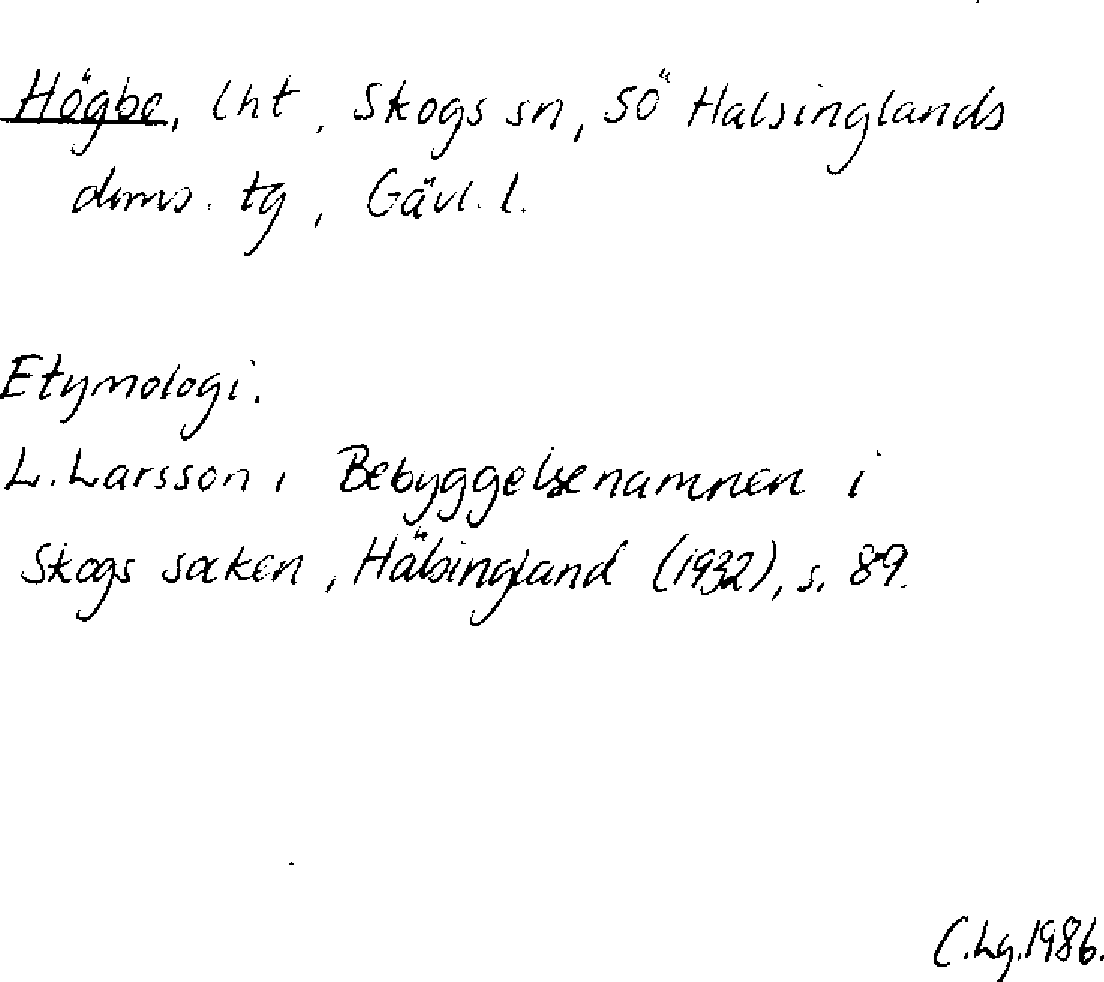 Högbe, lht, Skogs sn, SÖ Hälsinglands
doms. tg, Gävl. l.
Etymologi.
L. Larsson, Bebyggelsenamnen i
Skogs socken, Hälsingland (1932), s. 89.
C.Lg.1986.